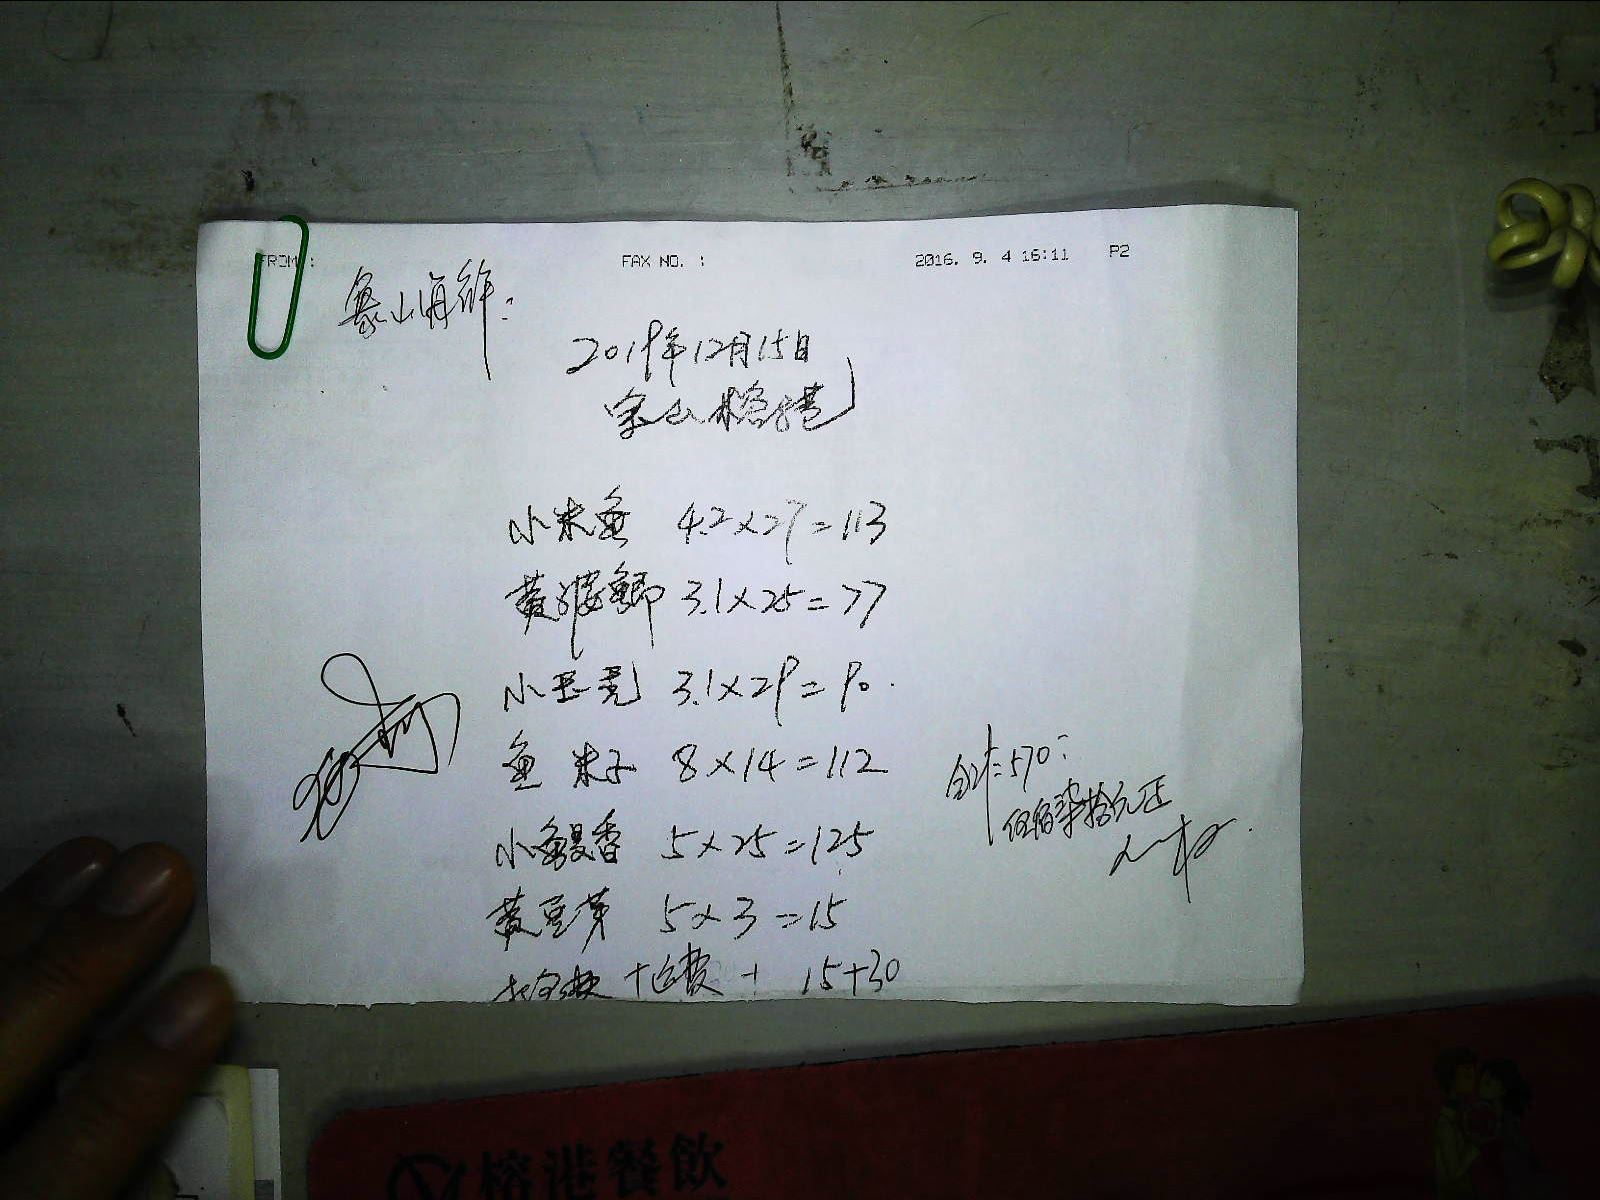 FROM :
FAX NO. :
2016. 9. 4 16:11 P2
象山海鲜:
2019年12月15日
宝山榕港
小米鱼 4.2×27=113
黄婆鲫 3.1×25=77
小玉秃 3.1×29=90.
鱼 米子 8×14=112
小鳗香 5×25=125
黄豆芽 5×3=15
+运费+ 15+30
合计:570:
伍佰柒拾元正
榕港餐飲